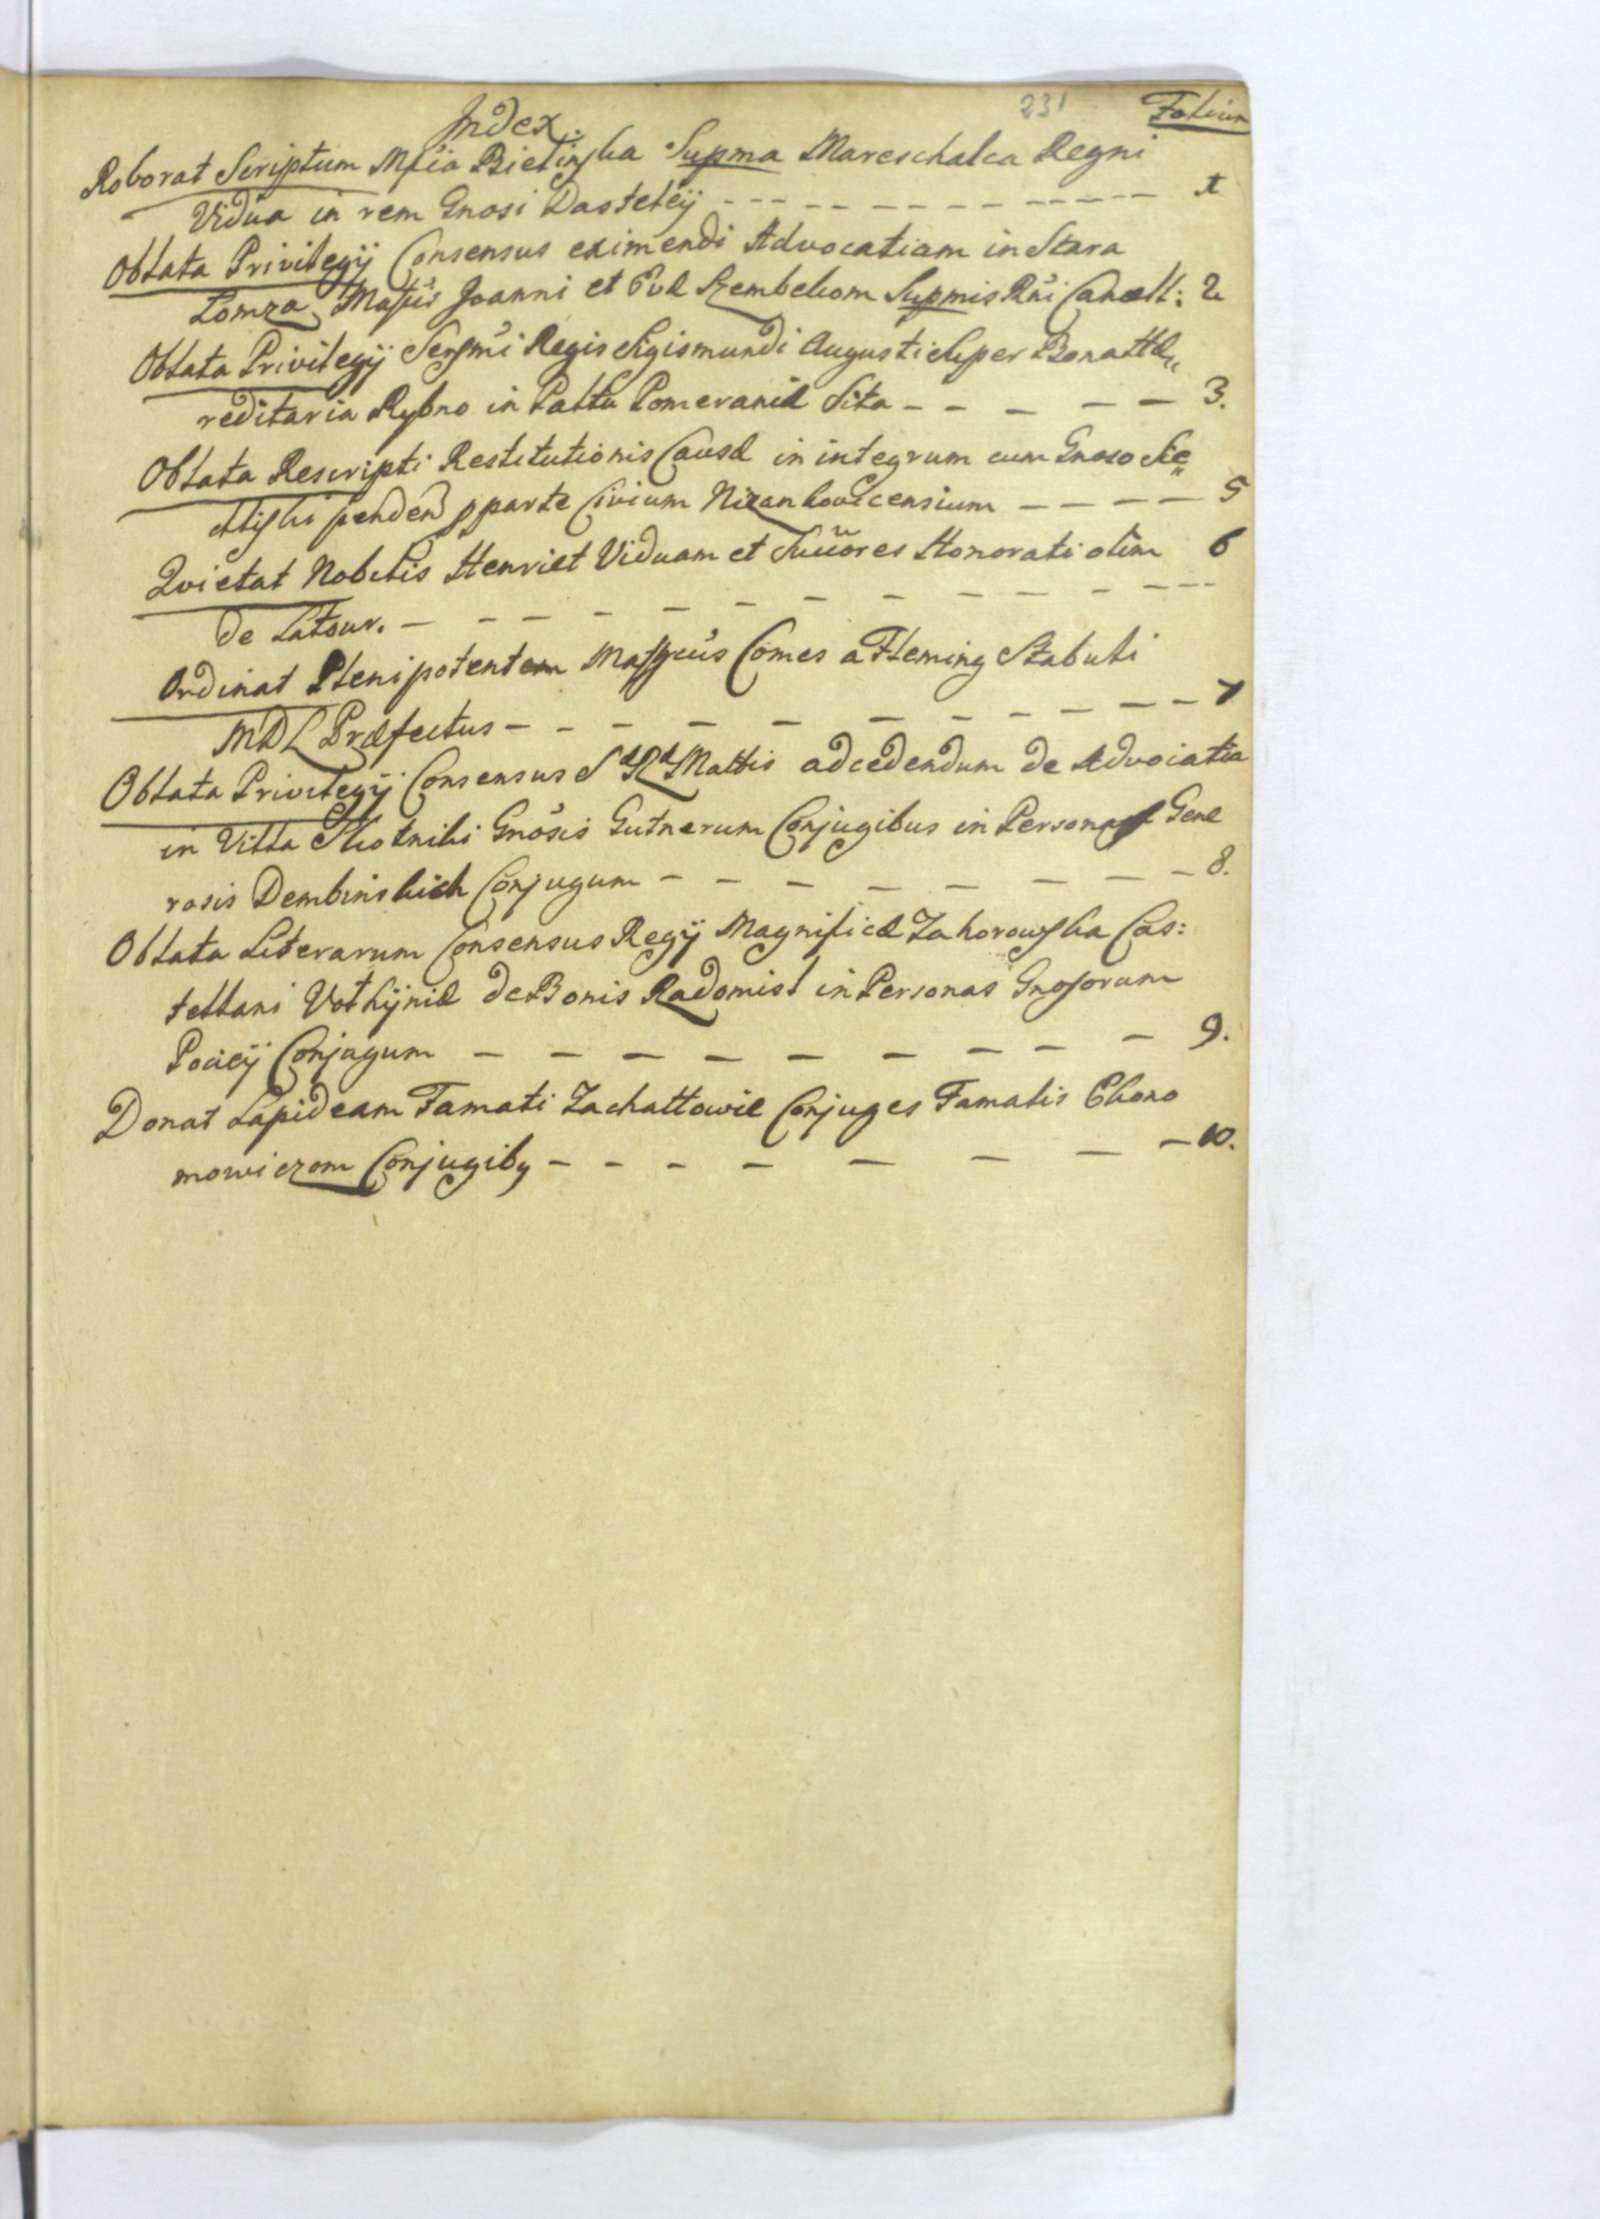 Index. 231 Folium
Roborat Scriptum Mfica Bielinska Supma Mareschalca Regni
Vidua in rem Gnosi Dastelÿ 1
Oblata Privilegÿ Consensus eximendi Advocatiam in Stara
Lomza Joanni et Evæ Szembekom Supmis Rni Cancell: 2
Oblata Privilegÿ Sersmi Regis Sigismundi Augusti Super Bona Hæ„
reditaria Rybno in Pallu Pomeraniæ Sita 3.
Oblata Rescripti Restitutionis Causæ in integrum cum Gnoso Sie„
penden p parte Civium Nizankovicensium 5
Qvietat Nobilis Henriet Viduam et Succores Honorati olim 6
de Latour.
Ordinat Plenipotentem Comes a Fleming Stabuli
MDL Præfectus 7
Oblata Privilegÿ Consensus S R Mattis ad cedendum de Advocatia
in Villa Skotniki Gnosis Gutnerum Conjugibus in Personas Gene
rosis Dembinskich Conjugum 8.
Oblata Literarum Consensus Regÿ Magnificæ Zahorowska Cas:
tellani Volhÿniæ de Bonis Radomisl in Personas Gnosorum
Pocieÿ Conjugum 9.
Donat Lapideam Famati Zachallowie Conjuges Famatis Ekono
mowiczom Conjugibg 10.